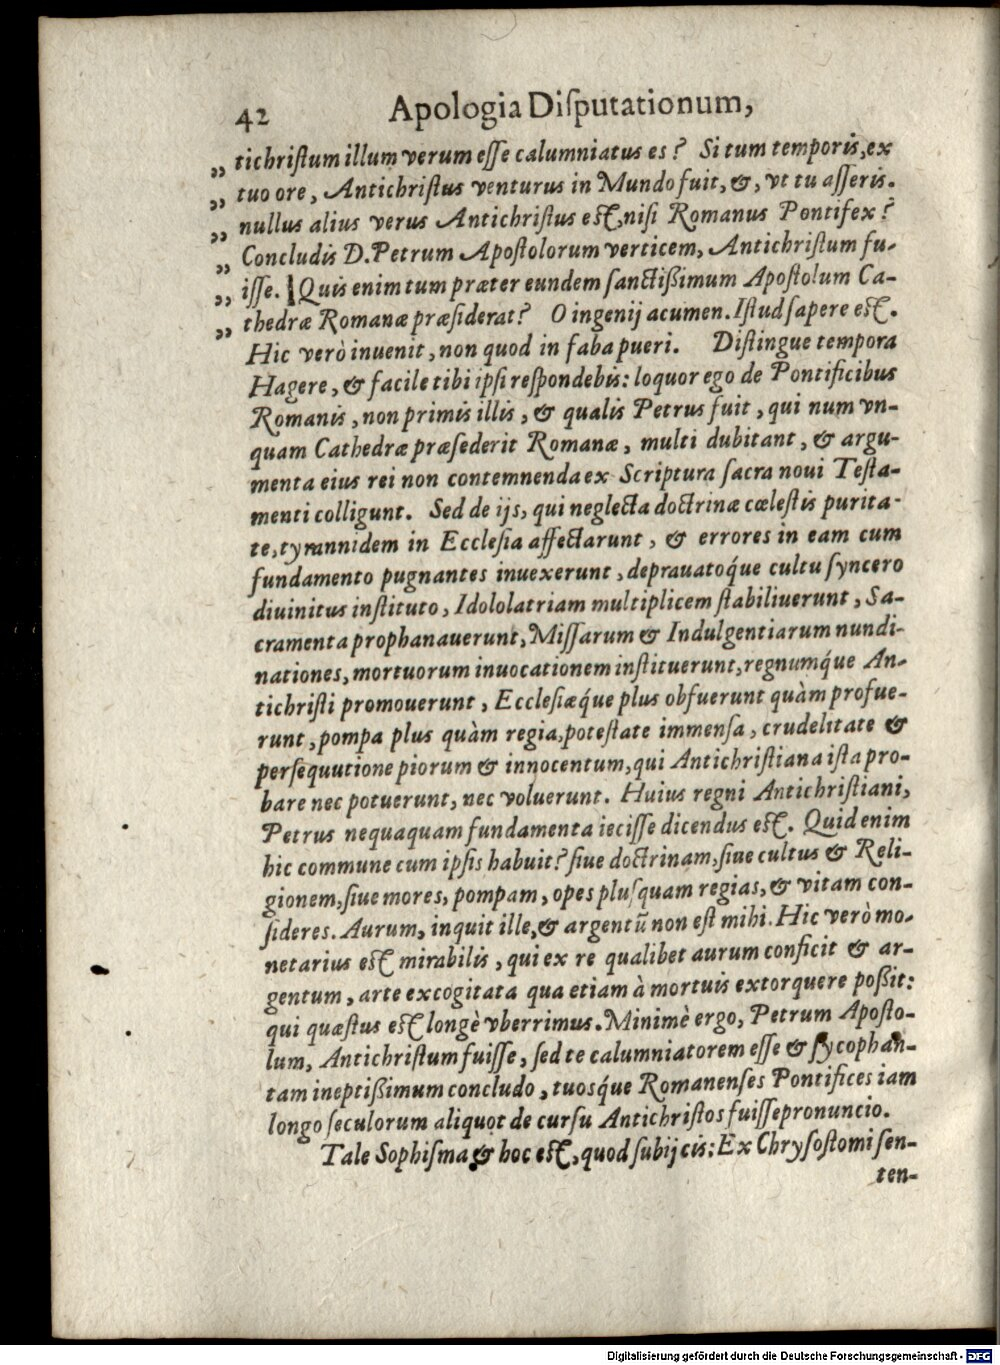 42 Apologia Diſputationum,
„ tichriſtum illum verum eſſe calumniatus es? Si tum temporis, ex
„ tuo ore, Antichriſtus venturus in Mundo fuit, &, vt tu aſſeris.
„ nullus alius verus Antichriſtus est, niſi Romanus Pontifex?
„ Concludis D. Petrum Apoſtolorum verticem, Antichriſtum fu-
„ iſſe. Quis enim tum præter eundem ſanctißimum Apoſtolum Ca-
„ thedræ Romanæ præſiderat? O ingenij acumen. Iſtud ſapere est.
Hic verò inuenit, non quod in faba pueri. Diſtingue tempora
Hagere, & facile tibi ipſi reſpondebis: loquor ego de Pontificibus
Romanis, non primis illis, & qualis Petrus fuit, qui num vn-
quam Cathedræ præſederit Romanæ, multi dubitant, & argu-
menta eius rei non contemnenda ex Scriptura ſacra noui Teſta-
menti colligunt. Sed de ijs, qui neglecta doctrinæ cœleſtis purita-
te, tyrannidem in Eccleſia affectarunt, & errores in eam cum
fundamento pugnantes inuexerunt, deprauatoq́ue cultu ſyncero
diuinitus inſtituto, Idololatriam multiplicem ſtabiliuerunt, Sa-
cramenta prophanauerunt, Miſſarum & Indulgentiarum nundi-
nationes, mortuorum inuocationem inſtituerunt, regnumq́ue An-
tichriſti promouerunt, Eccleſiæq́ue plus obfuerunt quàm profue-
runt, pompa plus quàm regia, poteſtate immenſa, crudelitate &
perſequutione piorum & innocentum, qui Antichriſtiana iſta pro-
bare nec potuerunt, nec voluerunt. Huius regni Antichriſtiani,
Petrus nequaquam fundamenta ieciſſe dicendus est. Quid enim
hic commune cum ipſis habuit? ſiue doctrinam, ſiue cultus & Reli-
gionem, ſiue mores, pompam, opes pluſquam regias, & vitam con-
ſideres. Aurum, inquit ille, & argentũ non eſt mihi. Hic verò mo-
netarius est mirabilis, qui ex re qualibet aurum conficit & ar-
gentum, arte excogitata qua etiam à mortuis extorquere poßit:
qui quæſtus est longè vberrimus. Minimè ergo, Petrum Apoſto-
lum, Antichriſtum fuiſſe, ſed te calumniatorem eſſe & ſycophan-
tam ineptißimum concludo, tuosq́ue Romanenſes Pontifices iam
longo ſeculorum aliquot de curſu Antichriſtos fuiſſe pronuncio.
Tale Sophiſma & hoc est, quod ſubijcis: Ex Chryſoſtomi ſen-
ten-
Digitalisierung gefördert durch die Deutsche Forschungsgemeinschaft - DFG